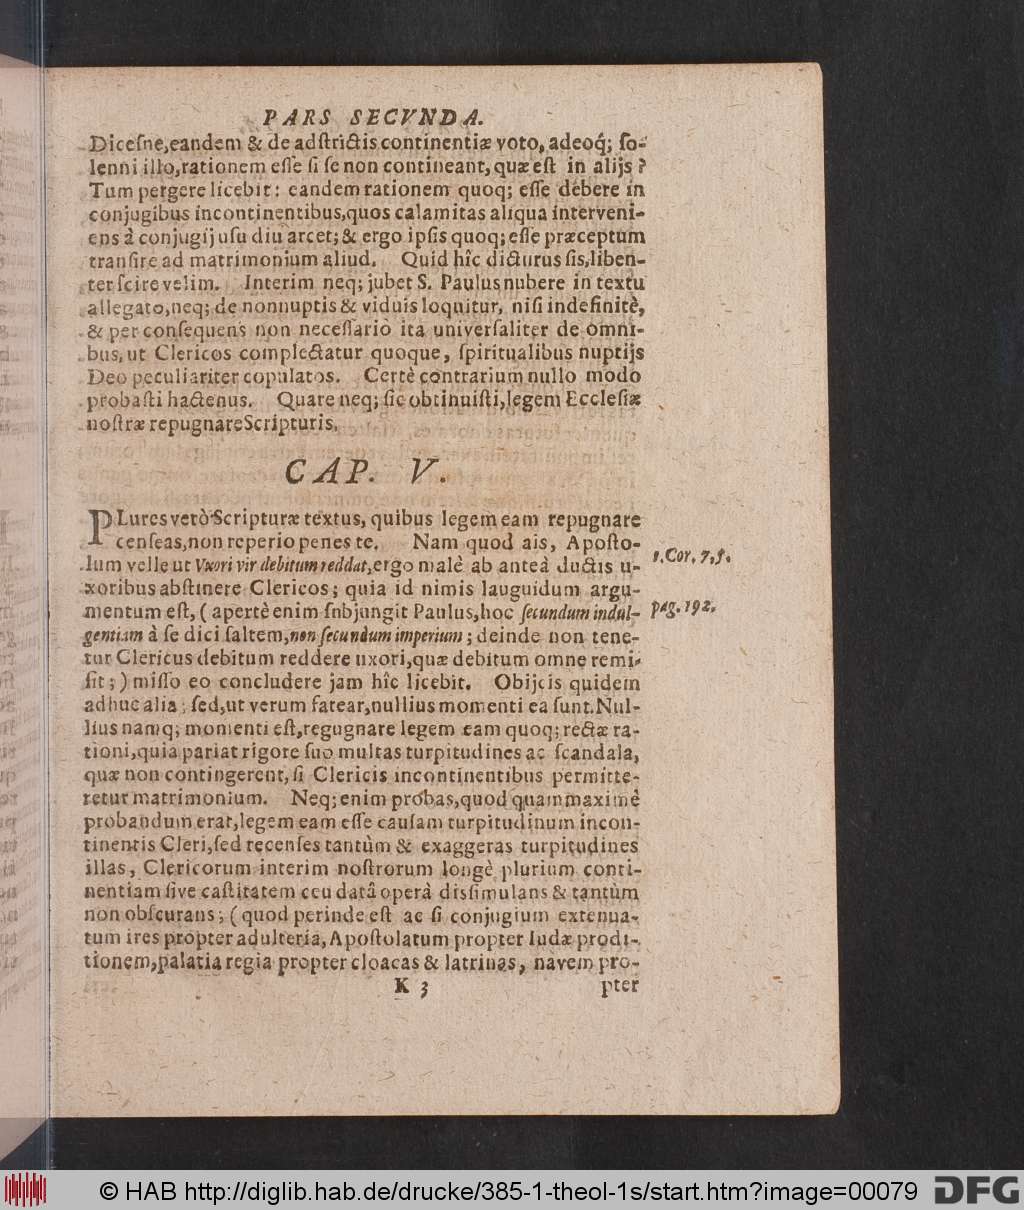 PARS SECVNDA.
Dicesne, eandem & de adſtrictis continentiæ voto, adeoq́; ſo-
lenni illo, rationem eſſe ſi ſe non contineant, quæ eſt in alijs?
Tum pergere licebit: eandem rationem quoq; eſſe debere in
conjugibus incontinentibus, quos calamitas aliqua interveni-
ens à conjugij uſu diu arcet; & ergo ipſis quoq; eſſe præceptum
tranſire ad matrimonium aliud. Quid hîc dicturus ſis, liben-
ter ſcire velim. Interim neq; jubet S. Paulus nubere in textu
allegato, neq; de nonnuptis & viduis loquitur, niſi indefinitè,
& per conſequens non neceſſariò ita univerſaliter de omni-
bus, ut Clericos complectatur quoque, ſpiritualibus nuptijs
Deo peculiariter copulatos. Certè contrarium nullo modo
probaſti hactenus. Quare neq; ſic obtinuiſti, legem Eccleſiæ
noſtræ repugnare Scripturis.
CAP. V.
PLures verò Scripturæ textus, quibus legem eam repugnare
cenſeas, non reperio penes te. Nam quod ais, Apoſto-
lum velle ut Vxori vir debitum reddat, ergo malè ab anteà ductis u-
1. Cor. 7, ſ.
xoribus abſtinere Clericos; quia id nimis lauguidum argu-
mentum eſt, (apertè enim ſnbjungit Paulus, hoc ſecundum indul-
pag. 192.
gentiam à ſe dici ſaltem, non ſecundum imperium; deinde non tene-
tur Clericus debitum reddere uxori, quæ debitum omne remi-
ſit;) miſſo eo concludere jam hîc licebit. Obijcis quidem
adhuc alia; ſed, ut verum fatear, nullius momenti ea ſunt. Nul-
lius namq; momenti eſt, regugnare legem eam quoq; rectæ ra-
tioni, quia pariat rigore ſuo multas turpitudines ac ſcandala,
quæ non contingerent, ſi Clericis incontinentibus permitte-
retur matrimonium. Neq; enim probas, quod quam maximè
probandum erat, legem eam eſſe cauſam turpitudinum incon-
tinentis Cleri, ſed recenſes tantùm & exaggeras turpitudines
illas, Clericorum interim noſtrorum longè plurium conti-
nentiam ſive caſtitatem ceu datâ operâ disſimulans & tantùm
non obſcurans; (quod perinde eſt ac ſi conjugium extenua-
tum ires propter adulteria, Apoſtolatum propter Iudæ prodi-
tionem, palatia regia propter cloacas & latrinas, navem pro-
K 3 pter
© HAB http://diglib.hab.de/drucke/385-1-theol-1s/start.htm?image=00079
DFG